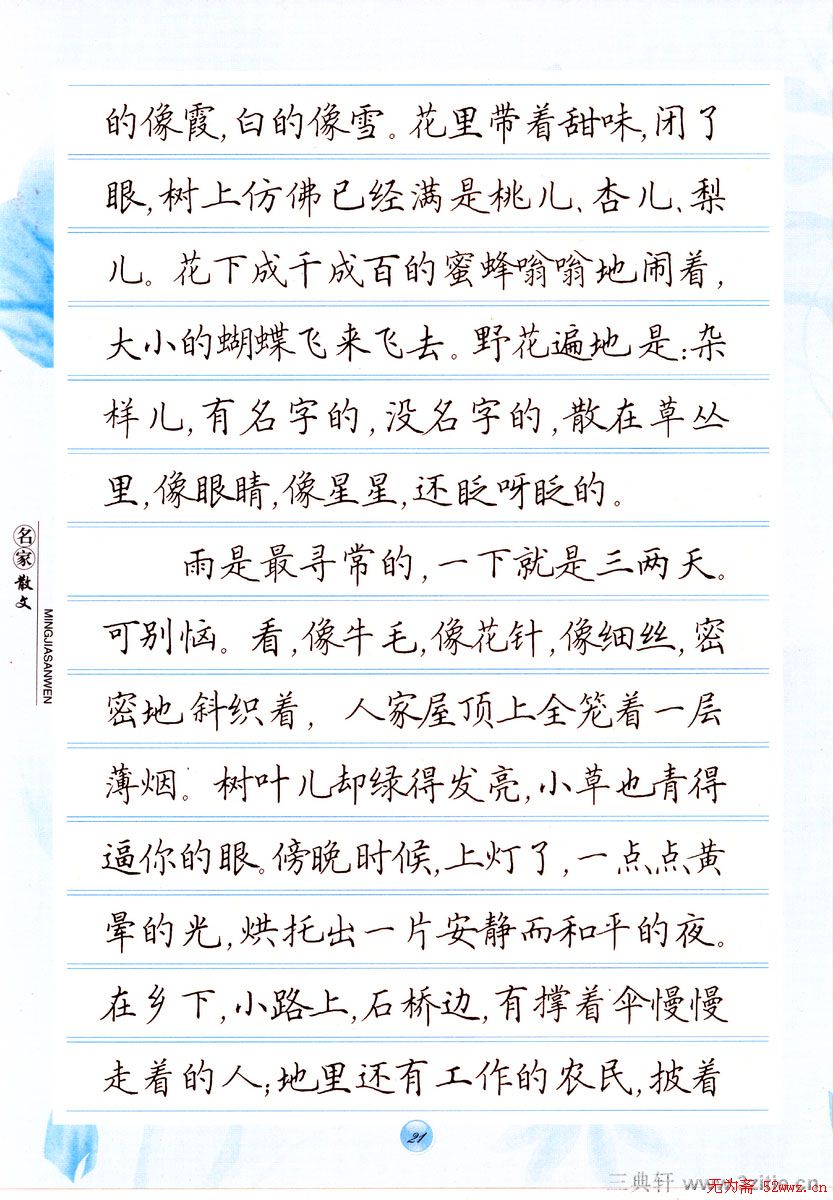 的像霞,白的像雪。花里带着甜味,闭了
眼,树上仿佛已经满是桃儿、杏儿、梨
儿。花下成千成百的蜜蜂嗡嗡地闹着,
大小的蝴蝶飞来飞去。野花遍地是:杂
样儿,有名字的,没名字的,散在草丛
里,像眼睛,像星星,还眨呀眨的。
雨是最寻常的,一下就是三两天。
可别恼。看,像牛毛,像花针,像细丝,密
密地斜织着,人家屋顶上全笼着一层
薄烟。树叶儿却绿得发亮,小草也青得
逼你的眼。傍晚时候,上灯了,一点点黄
晕的光,烘托出一片安静而和平的夜。
在乡下,小路上,石桥边,有撑着伞慢慢
走着的人;地里还有工作的农民,披着
名家散文
MINGJIASANWEN
21
三典轩
无为斋 52wwz.cn